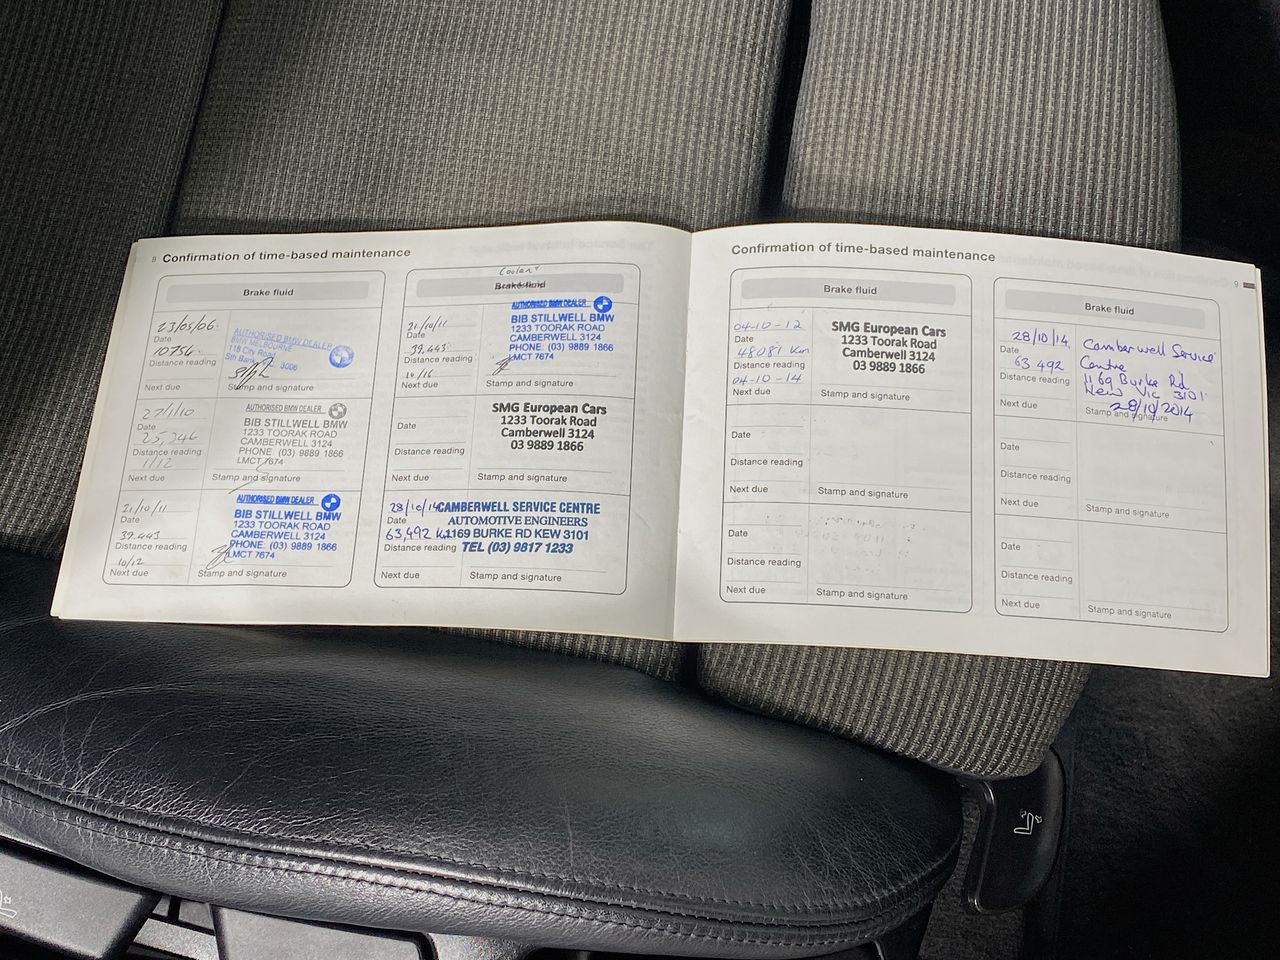 8 Confirmation of time-based maintenance
Brake fluid
23/05/06
Date
10754
Distance reading
Next due
AUTHORISED BMW DEALER
BMW MELBOURNE
118 City Road
3006
Stamp and signature
27/1/10
Date
25,246
Distance reading
1/12
Next due
AUTHORISED BMW DEALER
BIB STILLWELL BMW
1233 TOORAK ROAD
CAMBERWELL 3124
PHONE: (03) 9889 1866
LMCT 7674
Stamp and signature
21/10/11
Date
39,443
Distance reading
10/12
Next due
AUTHORISED BMW DEALER
BIB STILLWELL BMW
1233 TOORAK ROAD
CAMBERWELL 3124
PHONE: (03) 9889 1866
LMCT 7674
Stamp and signature
Coolant
Brake fluid
21/10/11
Date
39,443
Distance reading
Next due
AUTHORISED BMW DEALER
BIB STILLWELL BMW
1233 TOORAK ROAD
CAMBERWELL 3124
PHONE: (03) 9889 1866
LMCT 7674
Stamp and signature
Date
Distance reading
Next due
SMG European Cars
1233 Toorak Road
Camberwell 3124
03 9889 1866
Stamp and signature
28/10/14
Date
63,492 Km
Distance reading
Next due
CAMBERWELL SERVICE CENTRE
AUTOMOTIVE ENGINEERS
1169 BURKE RD KEW 3101
TEL (03) 9817 1233
Stamp and signature
Confirmation of time-based maintenance
9
Brake fluid
04-10-12
Date
48081 Km
Distance reading
04-10-14
Next due
SMG European Cars
1233 Toorak Road
Camberwell 3124
03 9889 1866
Stamp and signature
Date
Distance reading
Next due
Stamp and signature
Date
Distance reading
Next due
Stamp and signature
Brake fluid
28/10/14
Date
63 492
Distance reading
Next due
Camberwell Service
Centre
1169 Burke Rd
Kew Vic 3101
28/10/2014
Stamp and signature
Date
Distance reading
Next due
Date
Distance reading
Next due
Stamp and signature